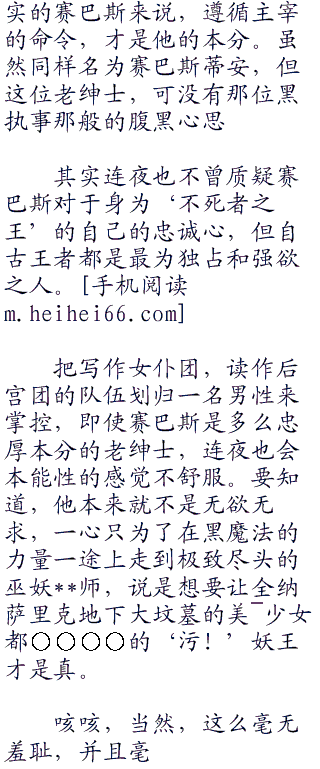 实的赛巴斯来说，遵循主宰
的命令，才是他的本分。虽
然同样名为赛巴斯蒂安，但
这位老绅士，可没有那位黑
执事那般的腹黑心思
其实连夜也不曾质疑赛
巴斯对于身为‘不死者之
王’的自己的忠诚心，但自
古王者都是最为独占和强欲
之人。[手机阅读
m.heihei66.com]
把写作女仆团，读作后
宫团的队伍划归一名男性来
掌控，即使赛巴斯是多么忠
厚本分的老绅士，连夜也会
本能性的感觉不舒服。要知
道，他本来就不是无欲无
求，一心只为了在黑魔法的
力量一途上走到极致尽头的
巫妖**师，说是想要让全纳
萨里克地下大坟墓的美¯少女
都〇〇〇〇的‘污！’妖王
才是真。
咳咳，当然，这么毫无
羞耻，并且毫